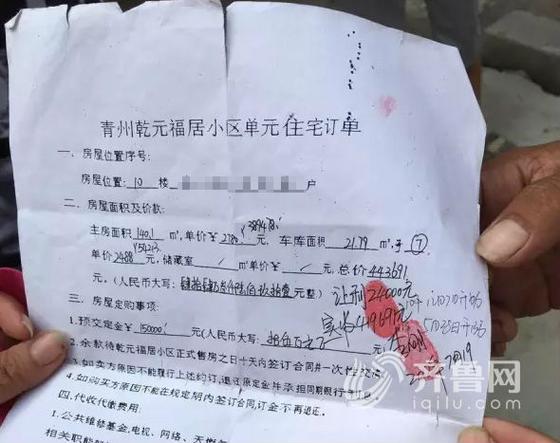 青州乾元福居小区单元住宅订单
一、房屋位置序号:
房屋位置: 10 楼 户
二、房屋面积及价款:
主房面积 140.1 m², 单价¥ 2780 元, 车库面积 21.79 m², ⑦
单价 2488 元, 储藏室 / m², 单价¥ / 元, 总价 443691
元。(人民币大写: 元整)
让利24000元
三、房屋定购事项:
1.预交定金¥ 150000 元(人民币大写: 拾伍万元 元)
2.余款待乾元福居小区正式售房之日十天内签订合同并一次性交清
3.如卖方原因不能履行上述约订,退还原定金并承担同期银行
4.如购买方原因不能在规定期内签订合同,订金不再退还。
四、代收代缴费用:
1.公共维修基金,电视、网络、天燃
相关职能部
齐鲁网
iqilu.com